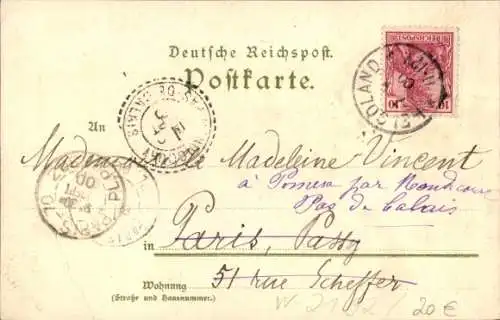 Deutsche Reichspost.
Postkarte.
An
Mademoiselle Madeleine Vincent
à Pomera par Mondicour
Pas de Calais
in Paris, Passy
Wohnung 51 rue Scheffer
(Straße und Hausnummer.)
20 €
REICHSPOST
10 10
HELGOLAND